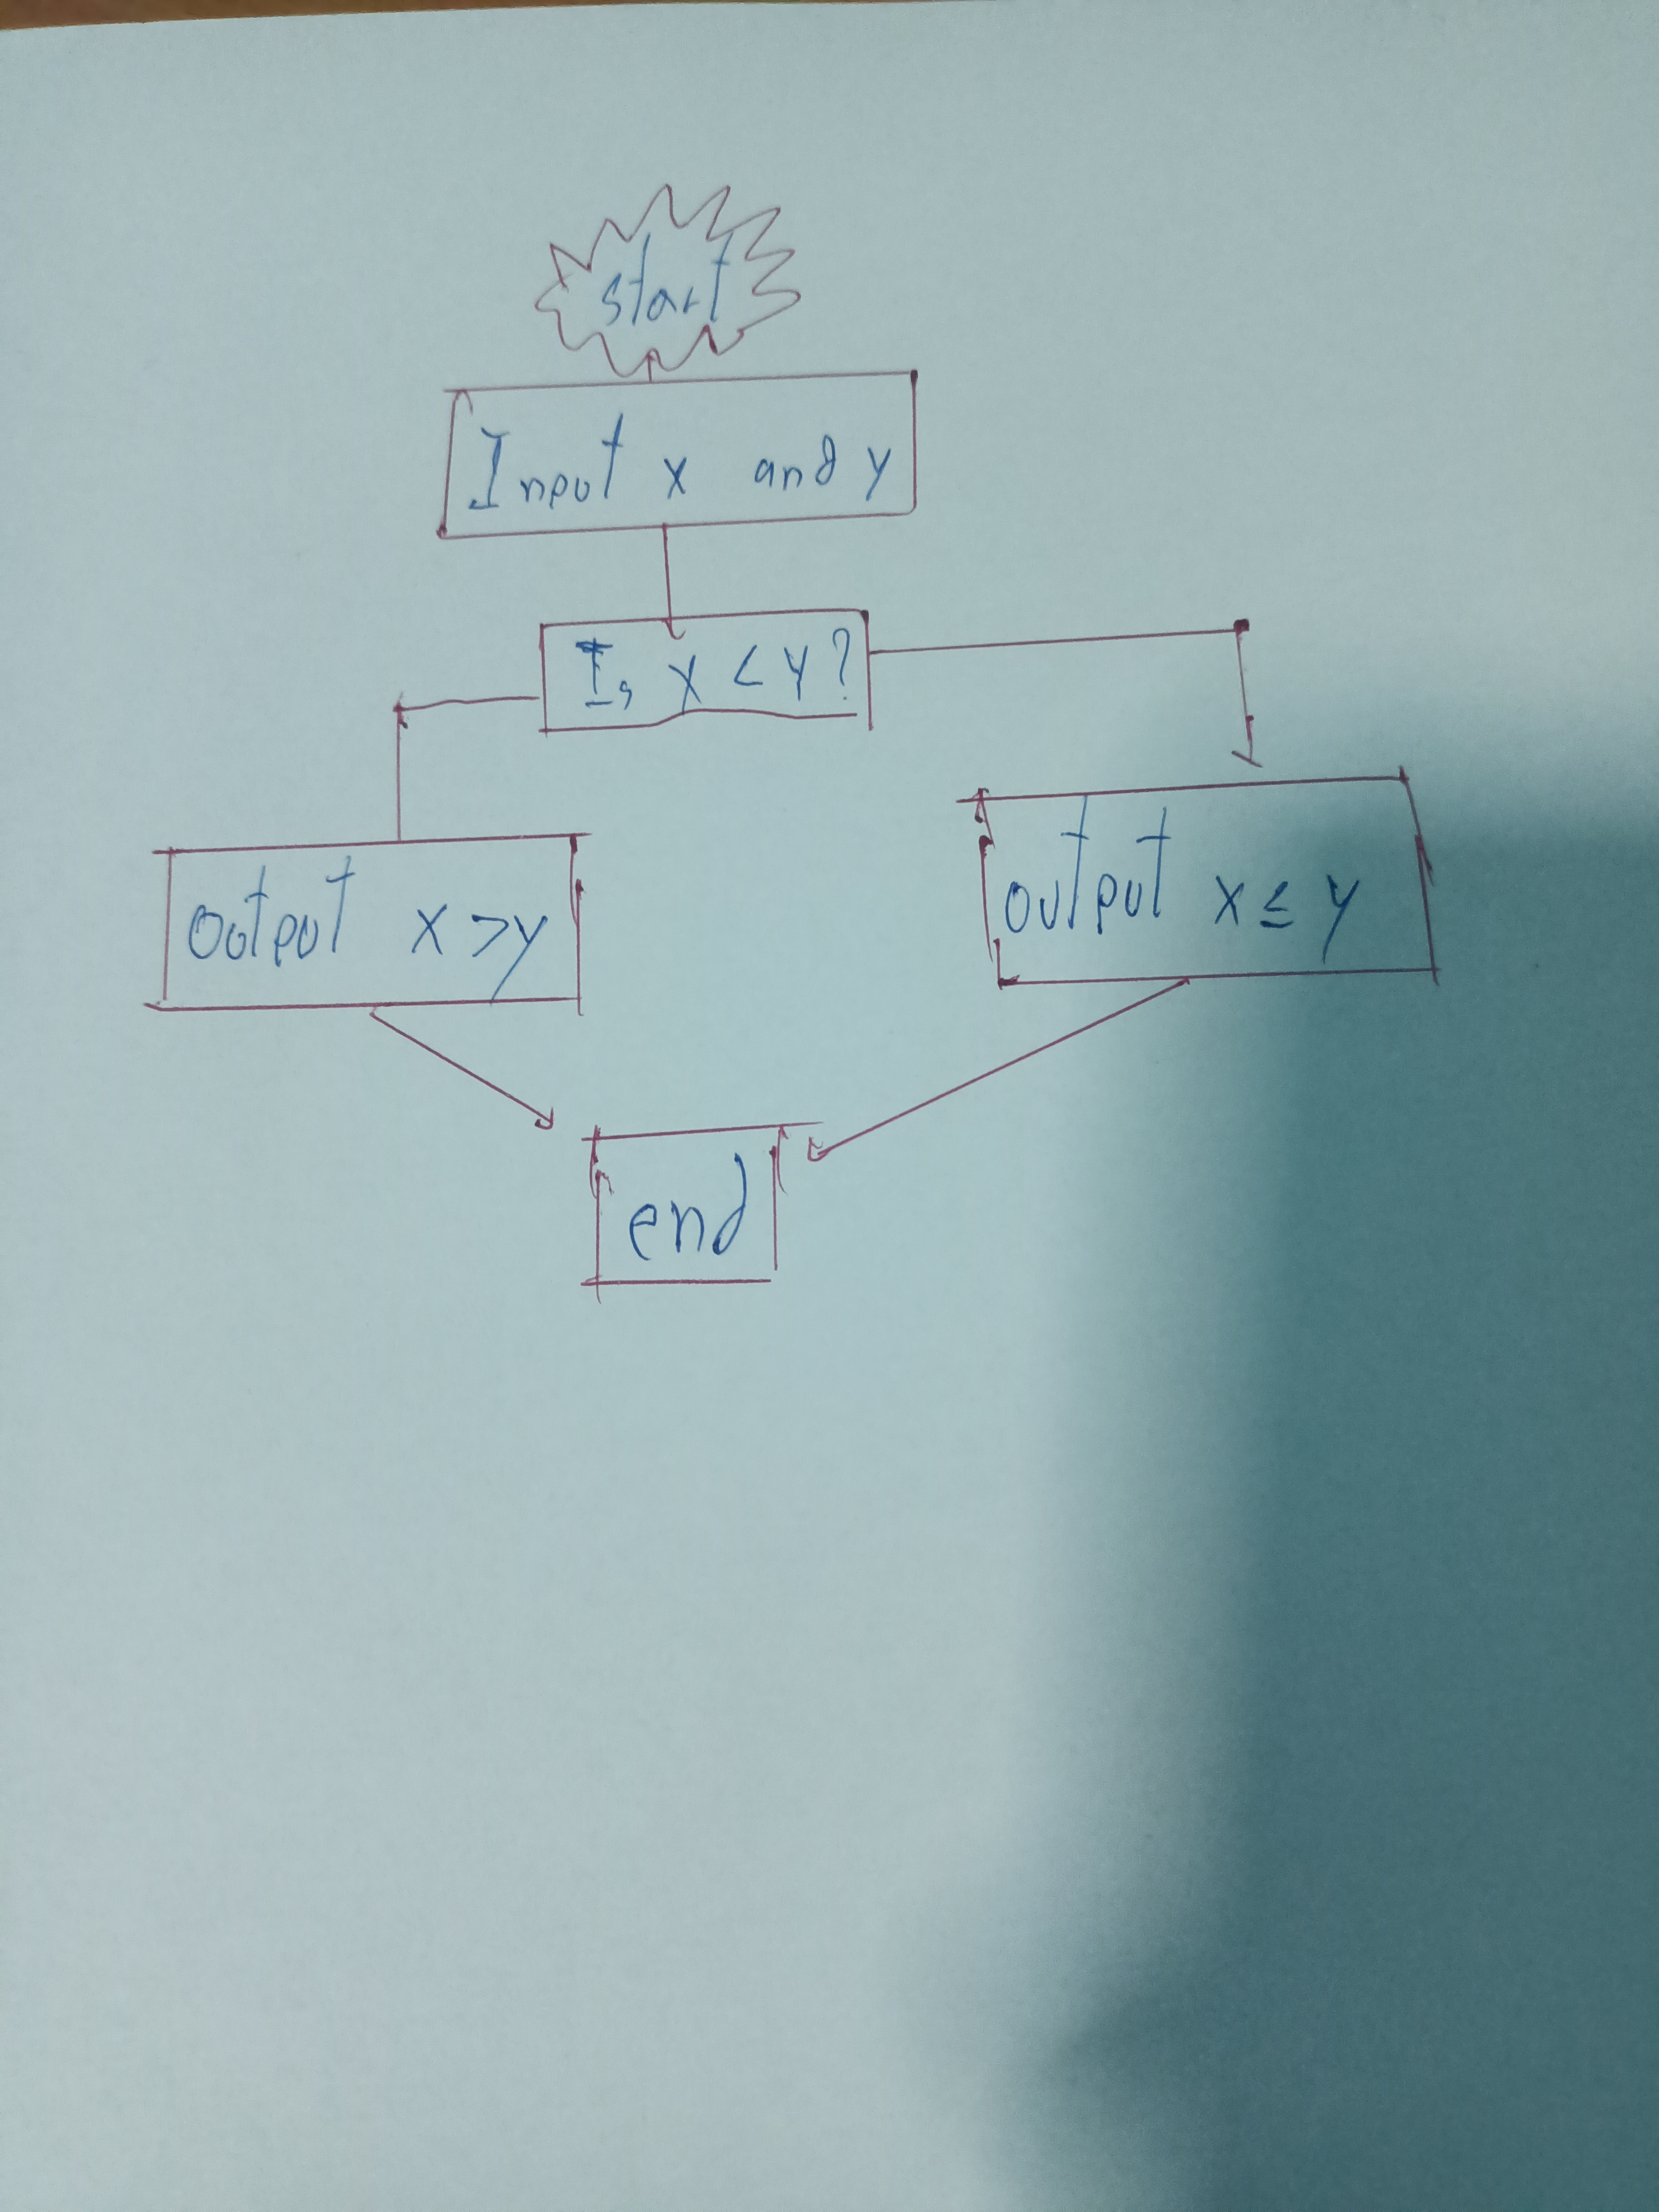 start
Input x and y
Is x < y?
output x > y
output x ≤ y
end